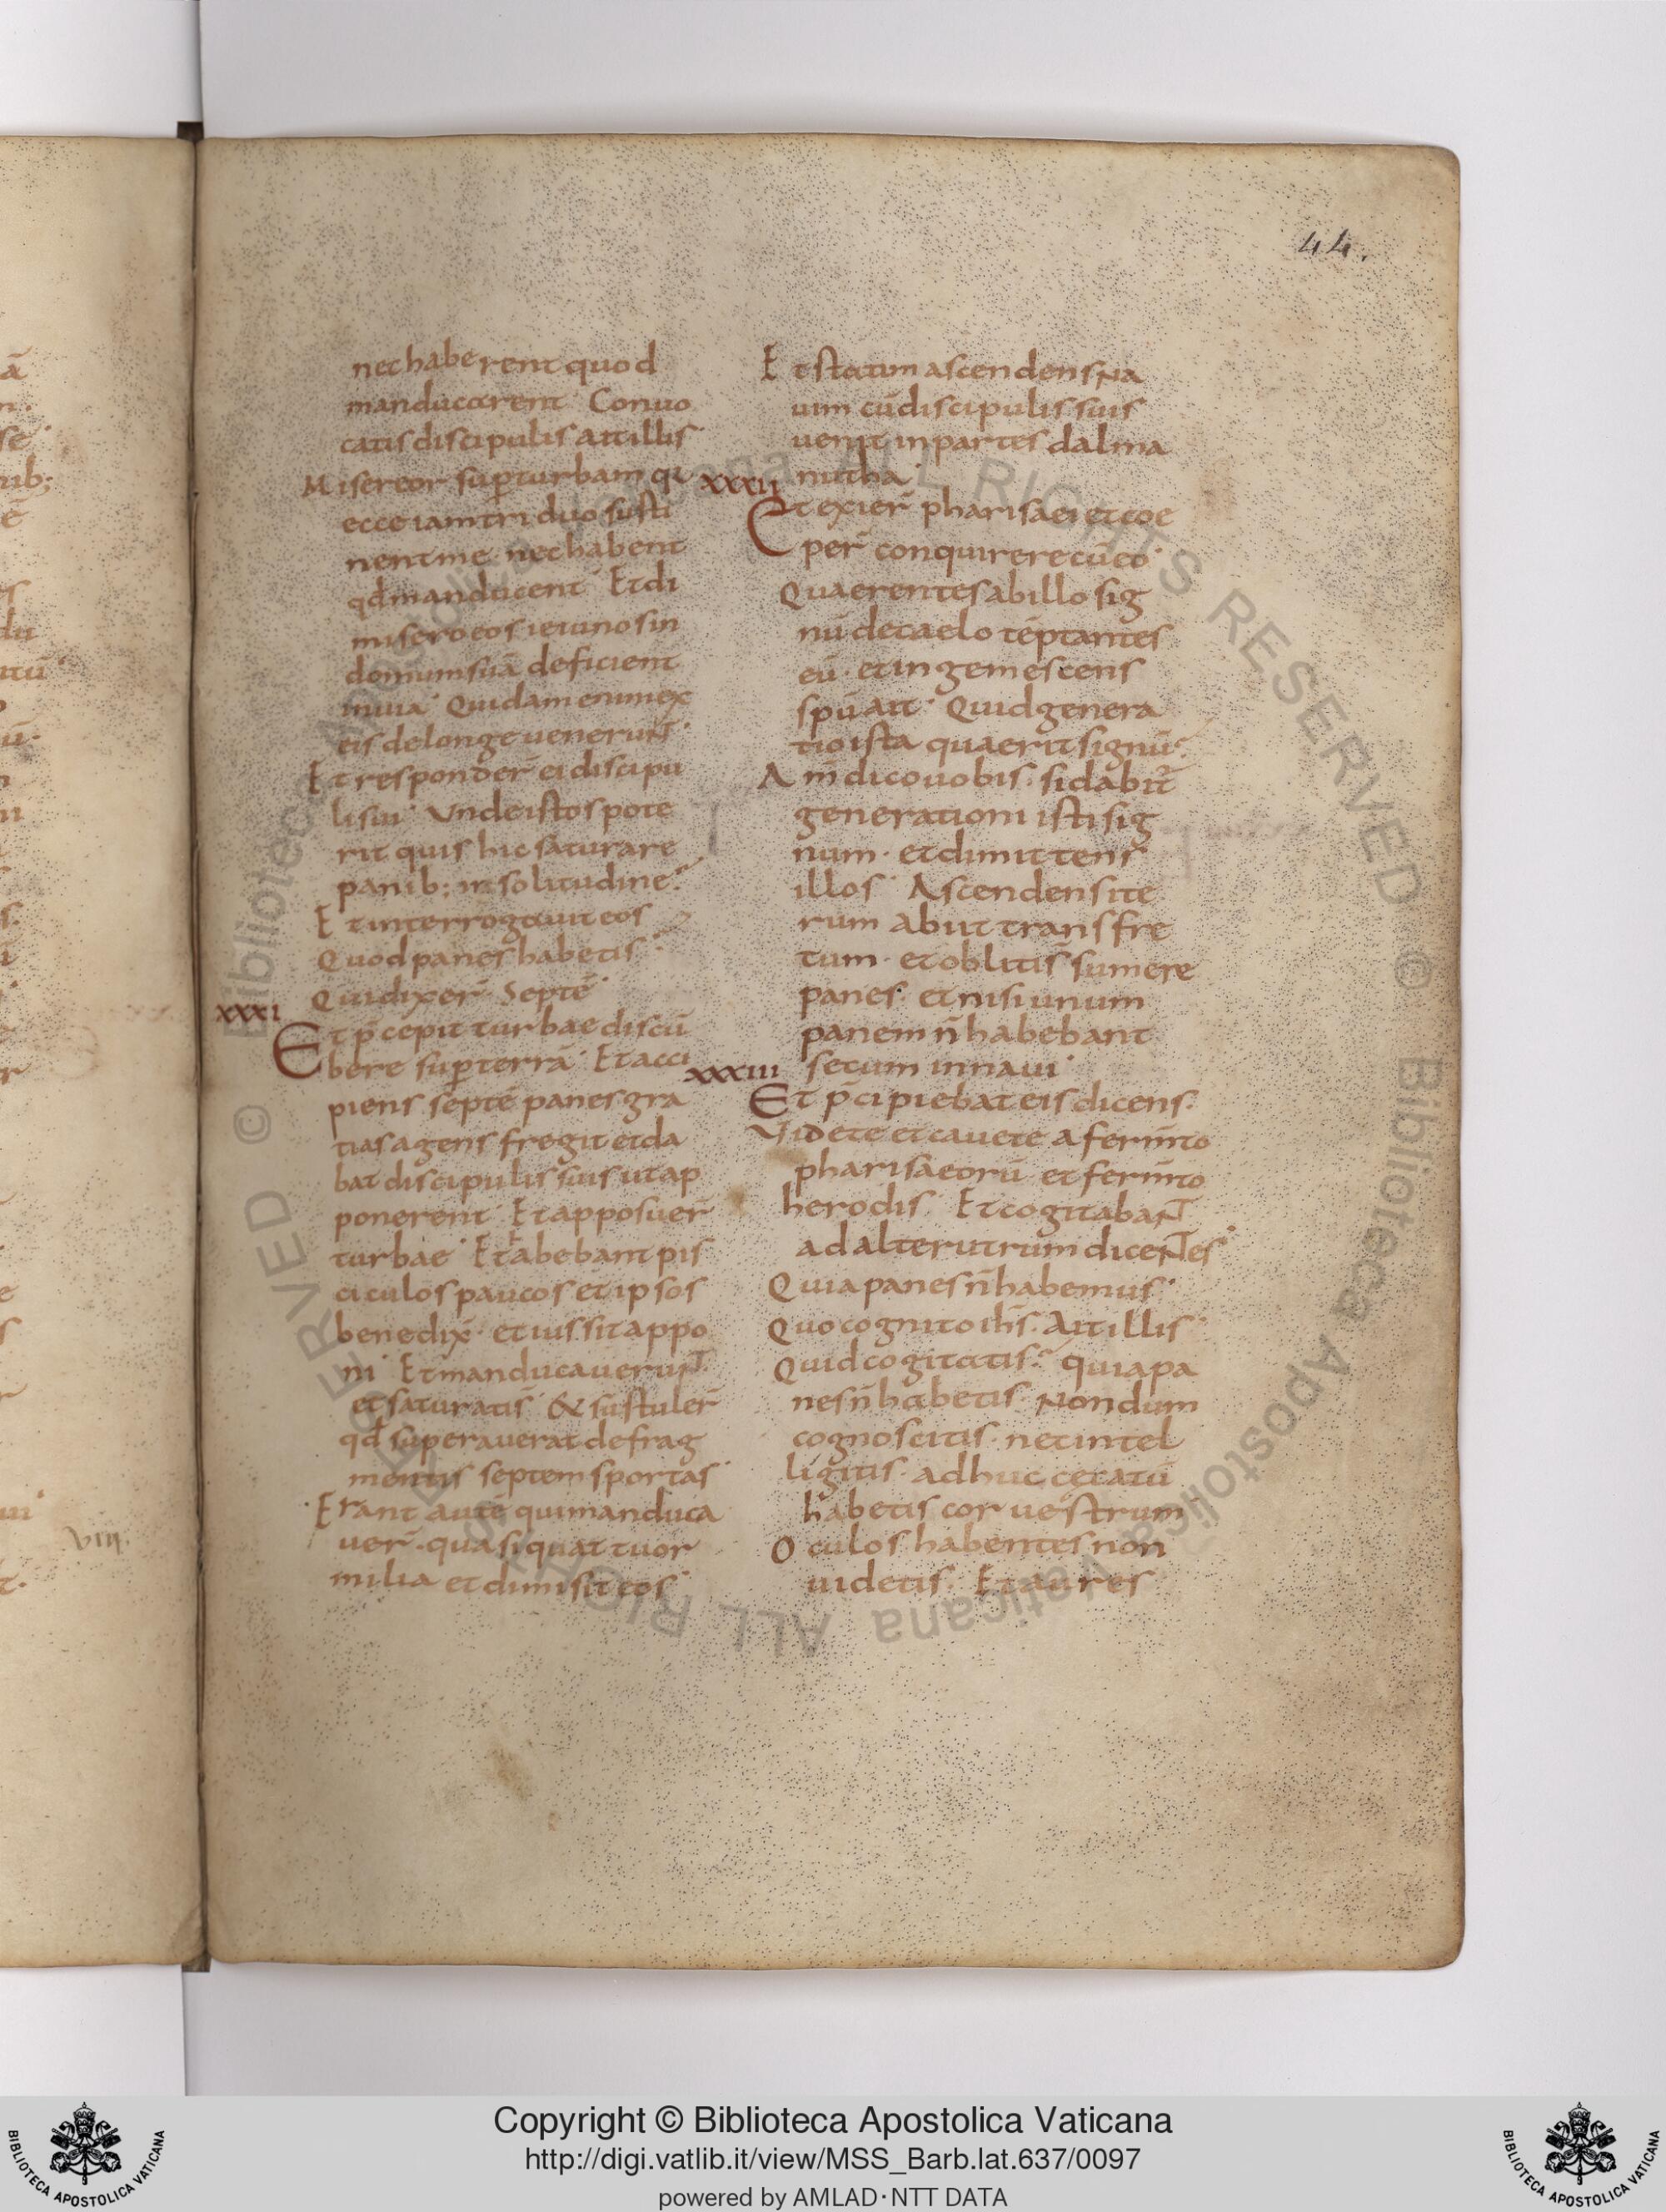 44.
nec haberent quod
manducarent· Conuo
catis discipulis ait illis·
Misereor sup̄ turbam q̄
ecce iam triduo susti
nent me nec habent
qđ manducent· Et di
misero eos ieiunos in
domum suā deficient
inuia· Quidam enim ex
eis de longe uenerunt·
Et responder̄ ei discipu
li sui· Unde istos pote
rit quis hic saturare
panib; in solitudine?
Et interrogauit eos
Quod panes habetis?
Qui dixer̄ Septē·
XXXI
Et p̄cepit turbae discū
bere sup̄ terrā· Et acci
piens septē panes gra
tias agens fregit et da
bat discipulis suis ut ap
ponerent· Et apposuer̄
turbae· Et abebant pis
ciculos paucos et ipsos
benedix̄· et iussit appo
ni· Et manducauerunt·
et saturatis· & sustuler̄
qđ superauerat de frag
mentis septem sportas·
·Erant autē qui manduca
uer̄· quasi quattuor
milia et dimisit eos·
Et statim ascendens na
uim cū discipulis suis
uenit in partes dalma
nutha·
XXXII
Et exier̄ pharisaei et coe
per̄ conquirere cū eo·
Quaerentes ab illo sig
nū de caelo tēptantes
eū· et ingemescens
spū ait· Quid genera
tio ista quaerit signū?
Am̄ dico uobis· si dabit̄
generationi isti sig
num· et dimittens
illos· Ascendens ite
rum abiit trans fre
tum· et oblitis̄ sumere
panes· et nisi unum
panem n̄ habebant
secum in naui·
XXXIII
Et p̄cipiebat eis dicens·
Videte et cauete a ferm̄to
pharisaeorū et ferm̄to
herodis· Et cogitabant
ad alterutrum dicentes·
Quia panes n̄ habemus·
Quo cognito ihs̄· Ait illis·
Quid cogitatis? quia pa
nes n̄ habetis· Nondum
cognoscitis· nec intel
ligitis· adhuc cecatū
habetis cor uestrum
Oculos habentes non
uidetis· Et aures
VIII.
Copyright © Biblioteca Apostolica Vaticana
http://digi.vatlib.it/view/MSS_Barb.lat.637/0097
powered by AMLAD·NTT DATA
BIBLIOTECA APOSTOLICA VATICANA
BIBLIOTECA APOSTOLICA VATICANA